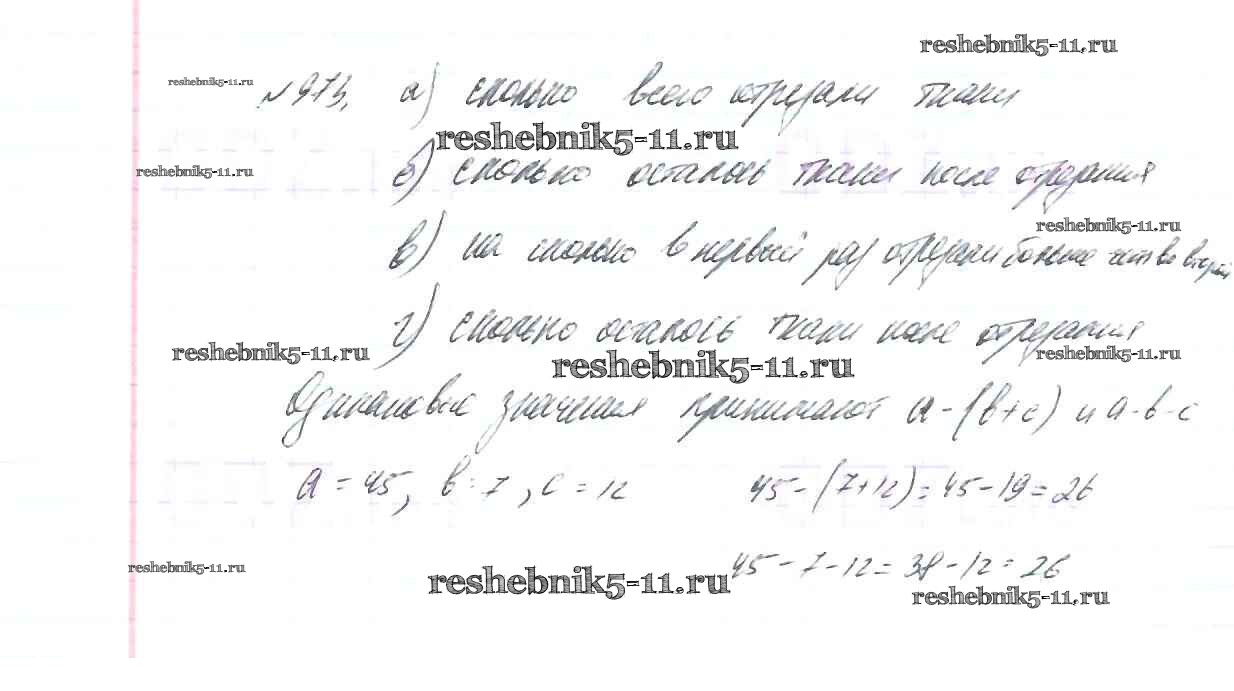 reshebnik5-11.ru
reshebnik5-11.ru
№973. а) сколько всего отрезали ткани
reshebnik5-11.ru
б) сколько осталось ткани после отрезания
reshebnik5-11.ru
reshebnik5-11.ru
в) на сколько в первый раз отрезали больше чем во второй
г) сколько осталось ткани после отрезания
reshebnik5-11.ru
reshebnik5-11.ru
reshebnik5-11.ru
Одинаковые значения принимают a-(b+c) и a-b-c
a=45, b=7, c=12 45-(7+12)=45-19=26
45-7-12=38-12=26
reshebnik5-11.ru
reshebnik5-11.ru
reshebnik5-11.ru